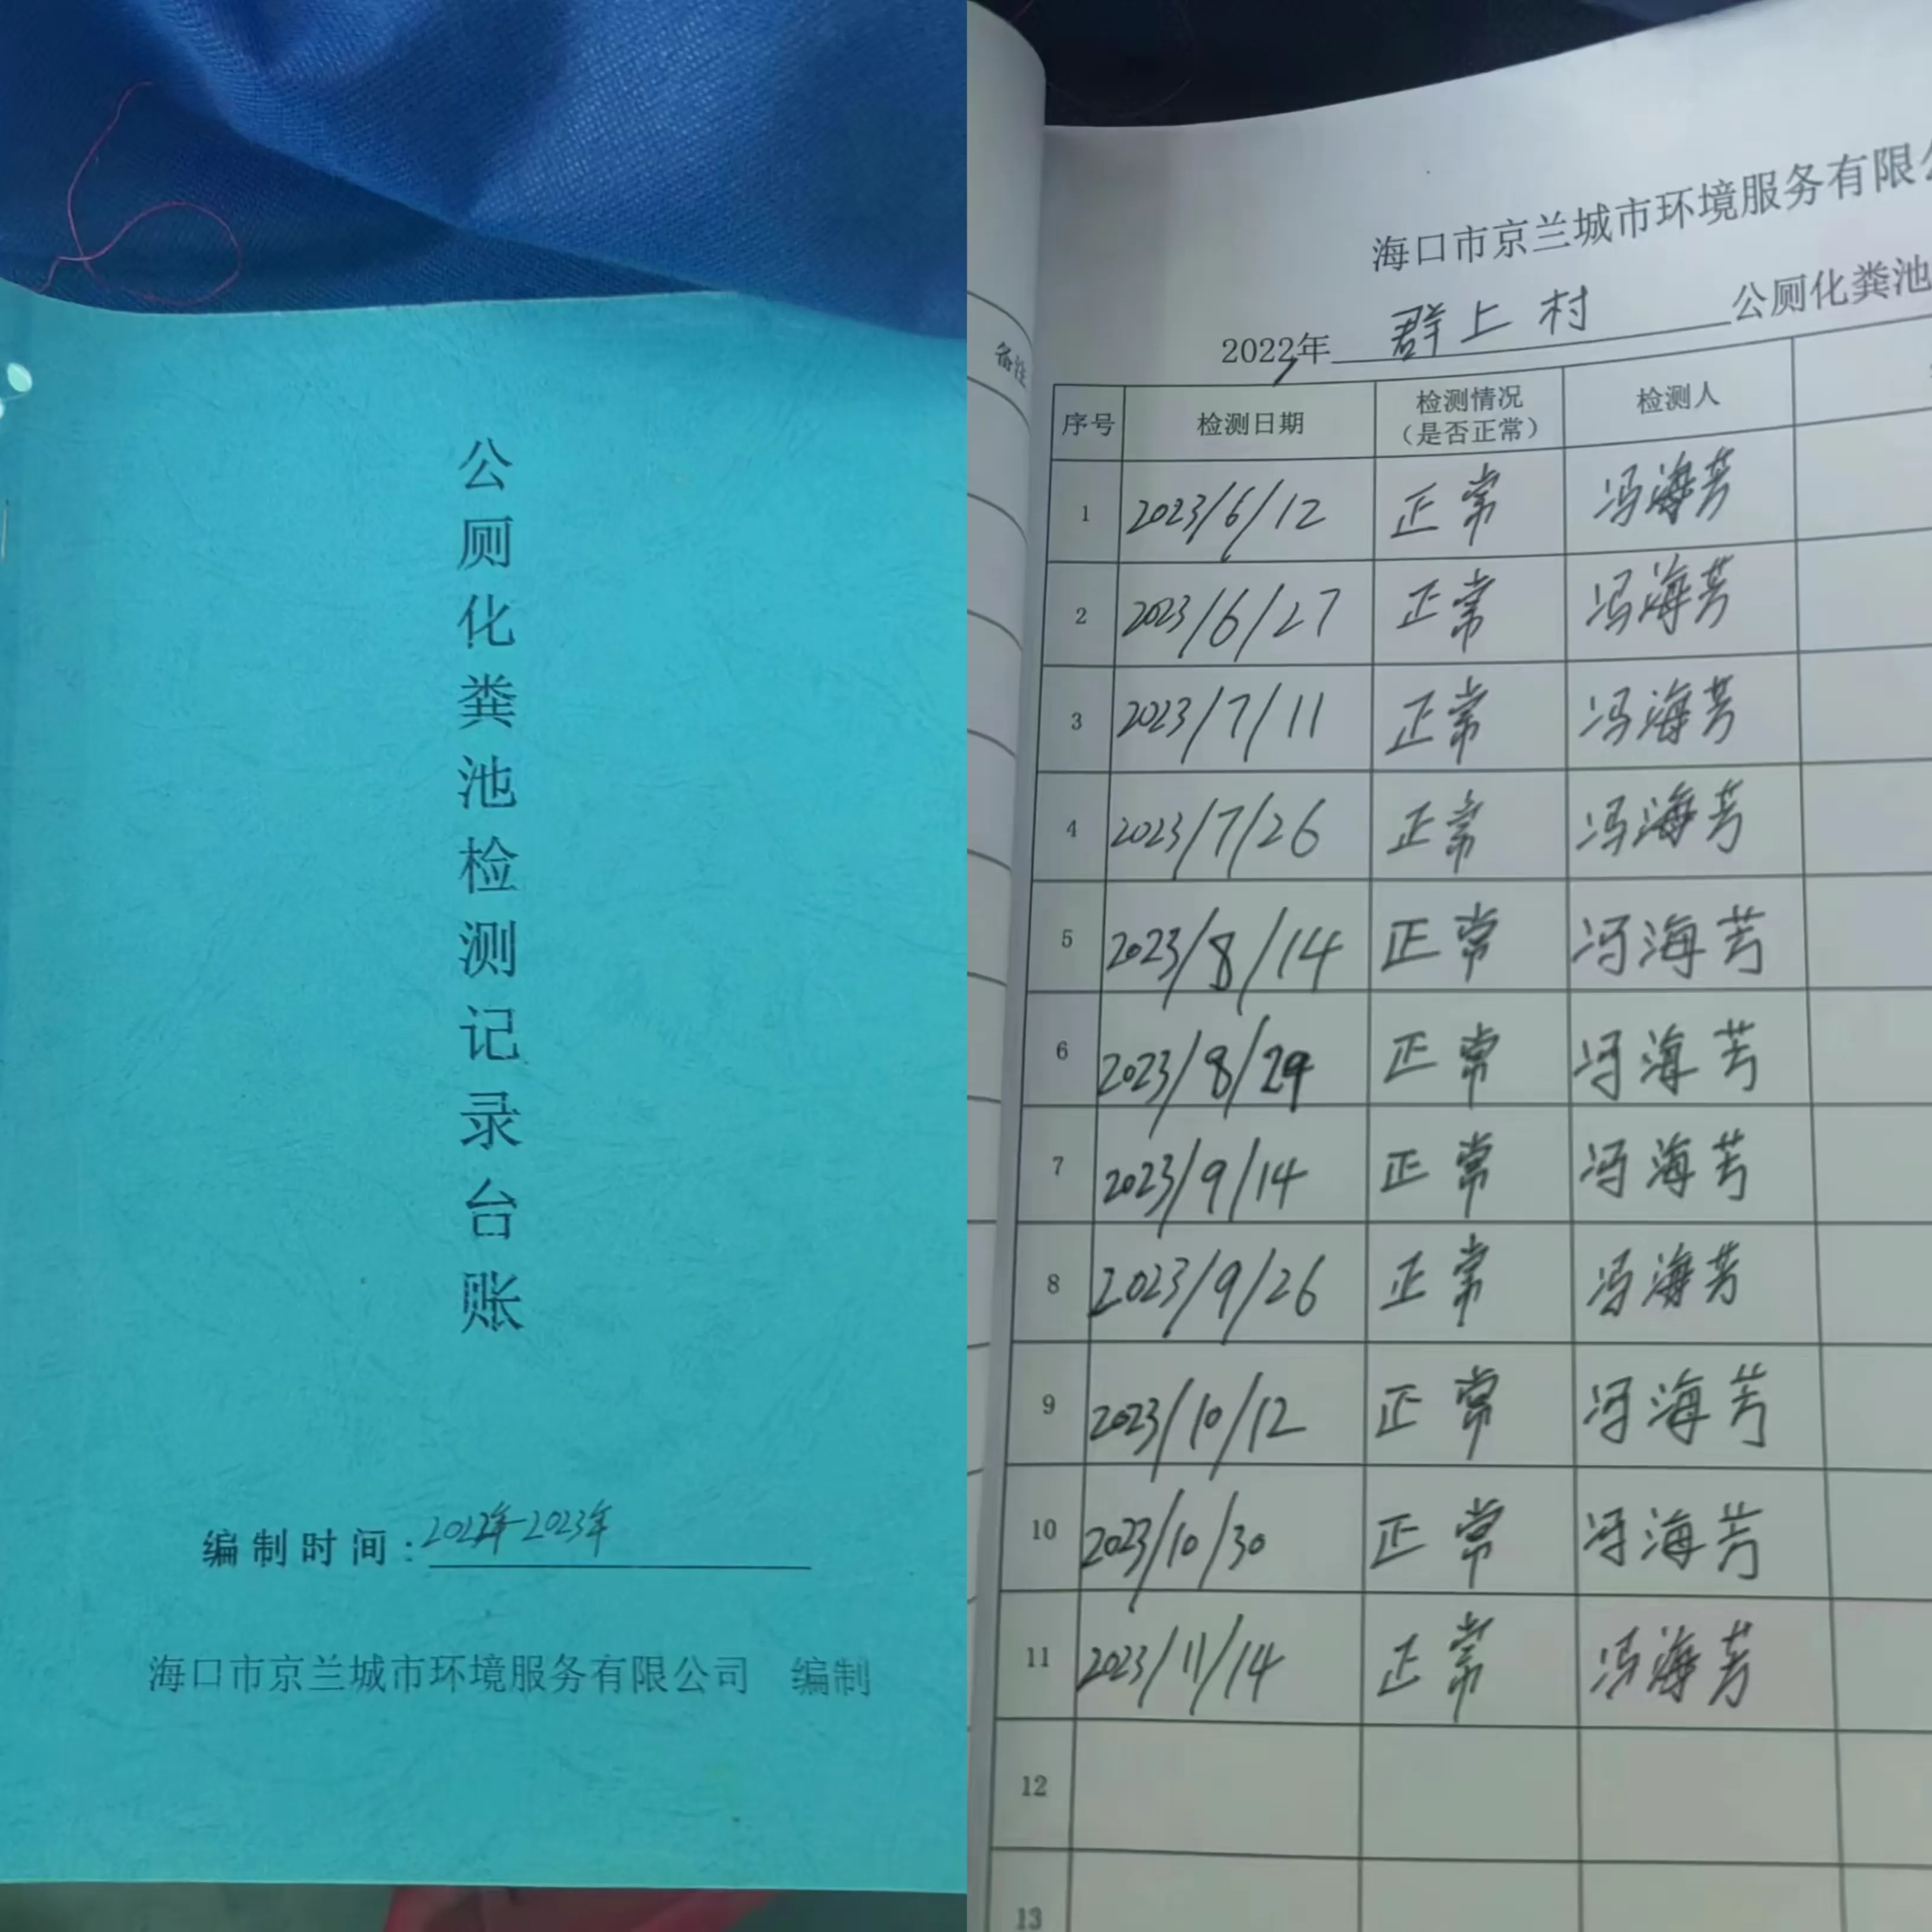 公厕化粪池检测记录台账
编制时间：2022年-2023年
海口市京兰城市环境服务有限公司 编制
备注
海口市京兰城市环境服务有限公
2022年 群上村 公厕化粪池
序号 检测日期 检测情况（是否正常） 检测人
1 2023/6/12 正常 冯海芳
2 2023/6/27 正常 冯海芳
3 2023/7/11 正常 冯海芳
4 2023/7/26 正常 冯海芳
5 2023/8/14 正常 冯海芳
6 2023/8/29 正常 冯海芳
7 2023/9/14 正常 冯海芳
8 2023/9/26 正常 冯海芳
9 2023/10/12 正常 冯海芳
10 2023/10/30 正常 冯海芳
11 2023/11/14 正常 冯海芳
12
13